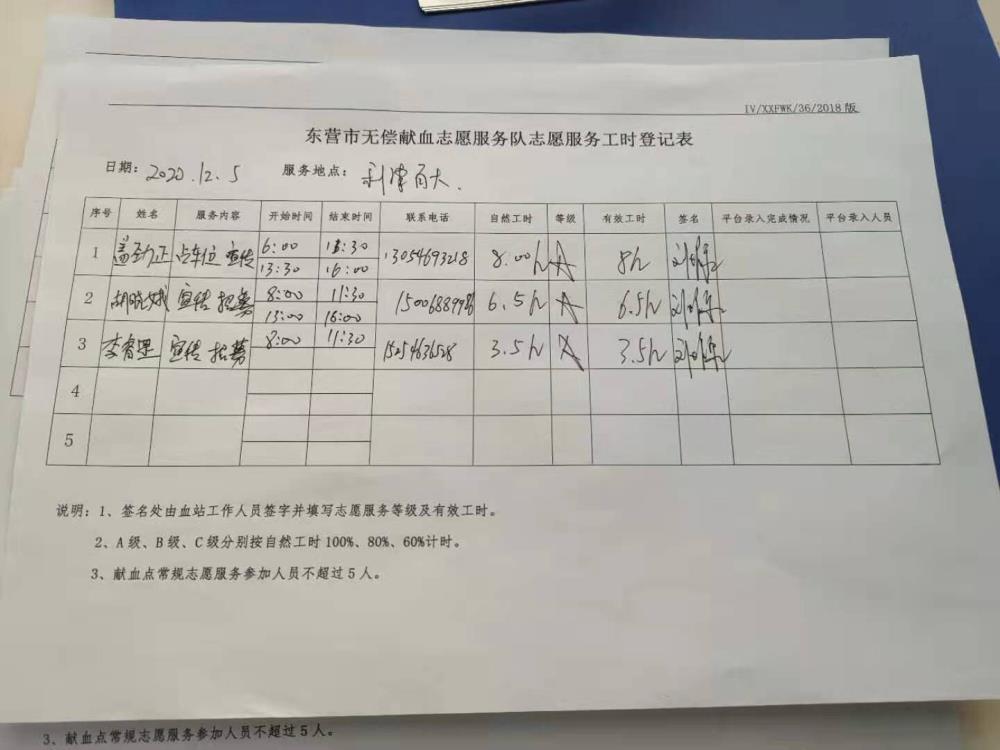 IV/XXFWK/36/2018版
东营市无偿献血志愿服务队志愿服务工时登记表
日期：2020.12.5 服务地点：利津百大.
序号 姓名 服务内容 开始时间 结束时间 联系电话 自然工时 等级 有效工时 签名 平台录入完成情况 平台录入人员
1 盖劲正 占车位 宣传 6:00 11:30 13054693218 8.00h A 8h
13:30 16:00
2 胡晓娥 宣传 招募 8:00 11:30 6.5h A 6.5h
13:00 16:00
3 宣传 招募 8:00 11:30 15254636528 3.5h A 3.5h
4
5
说明：1、签名处由血站工作人员签字并填写志愿服务等级及有效工时。
2、A级、B级、C级分别按自然工时100%、80%、60%计时。
3、献血点常规志愿服务参加人员不超过5人。
3、献血点常规志愿服务参加人员不超过5人。